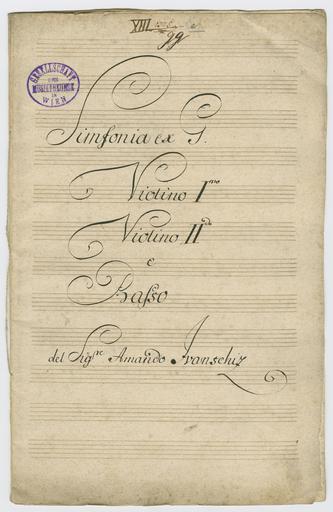 XIII
99
GESELLSCHAFT
DER
MUSIKFREUNDE
IN
WIEN
Sinfonia ex G.
Violino I^mo
Violino II^do
e
Basso
del Sig^re Amando Ivanschiz